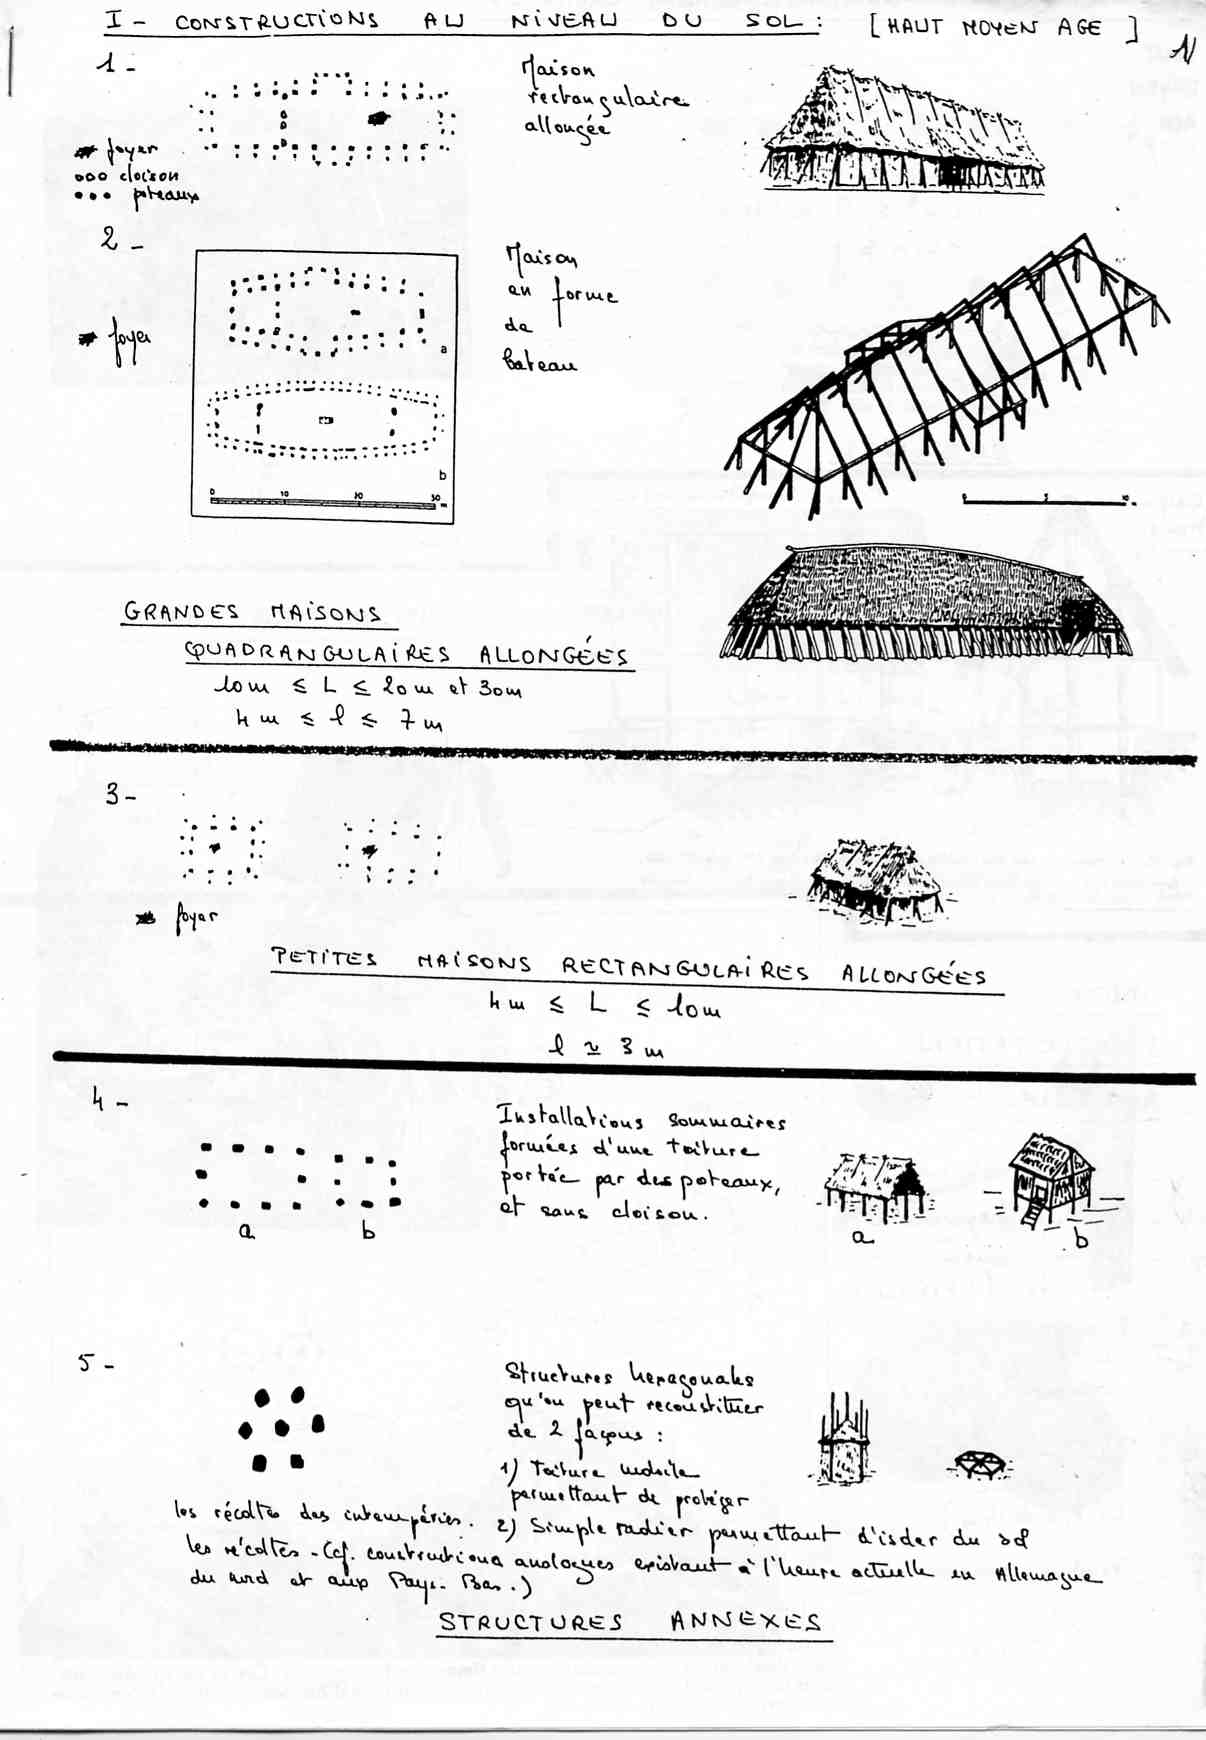 I - CONSTRUCTIONS AU NIVEAU DU SOL : [HAUT MOYEN AGE]
1 -
Maison
rectangulaire
allongée
foyer
ooo cloison
••• poteaux
2 -
Maison
en forme
de
bateau
foyer
a
b
0 10 20 30 m
0 5 10 m
GRANDES MAISONS
QUADRANGULAIRES ALLONGÉES
10m ≤ L ≤ 20m et 30m
4m ≤ l ≤ 7m
3 -
foyer
PETITES MAISONS RECTANGULAIRES ALLONGÉES
4m ≤ L ≤ 10m
l ≃ 3m
4 -
Installations sommaires
formées d'une toiture
portée par des poteaux,
et sans cloison.
a b
a b
5 -
Structures hexagonales
qu'on peut reconstituer
de 2 façons :
1) Toiture mobile
permettant de protéger
les récoltes des intempéries. 2) Simple radier permettant d'isoler du sol
les récoltes - (cf. constructions analogues existant à l'heure actuelle en Allemagne
du nord et aux Pays-Bas.)
STRUCTURES ANNEXES